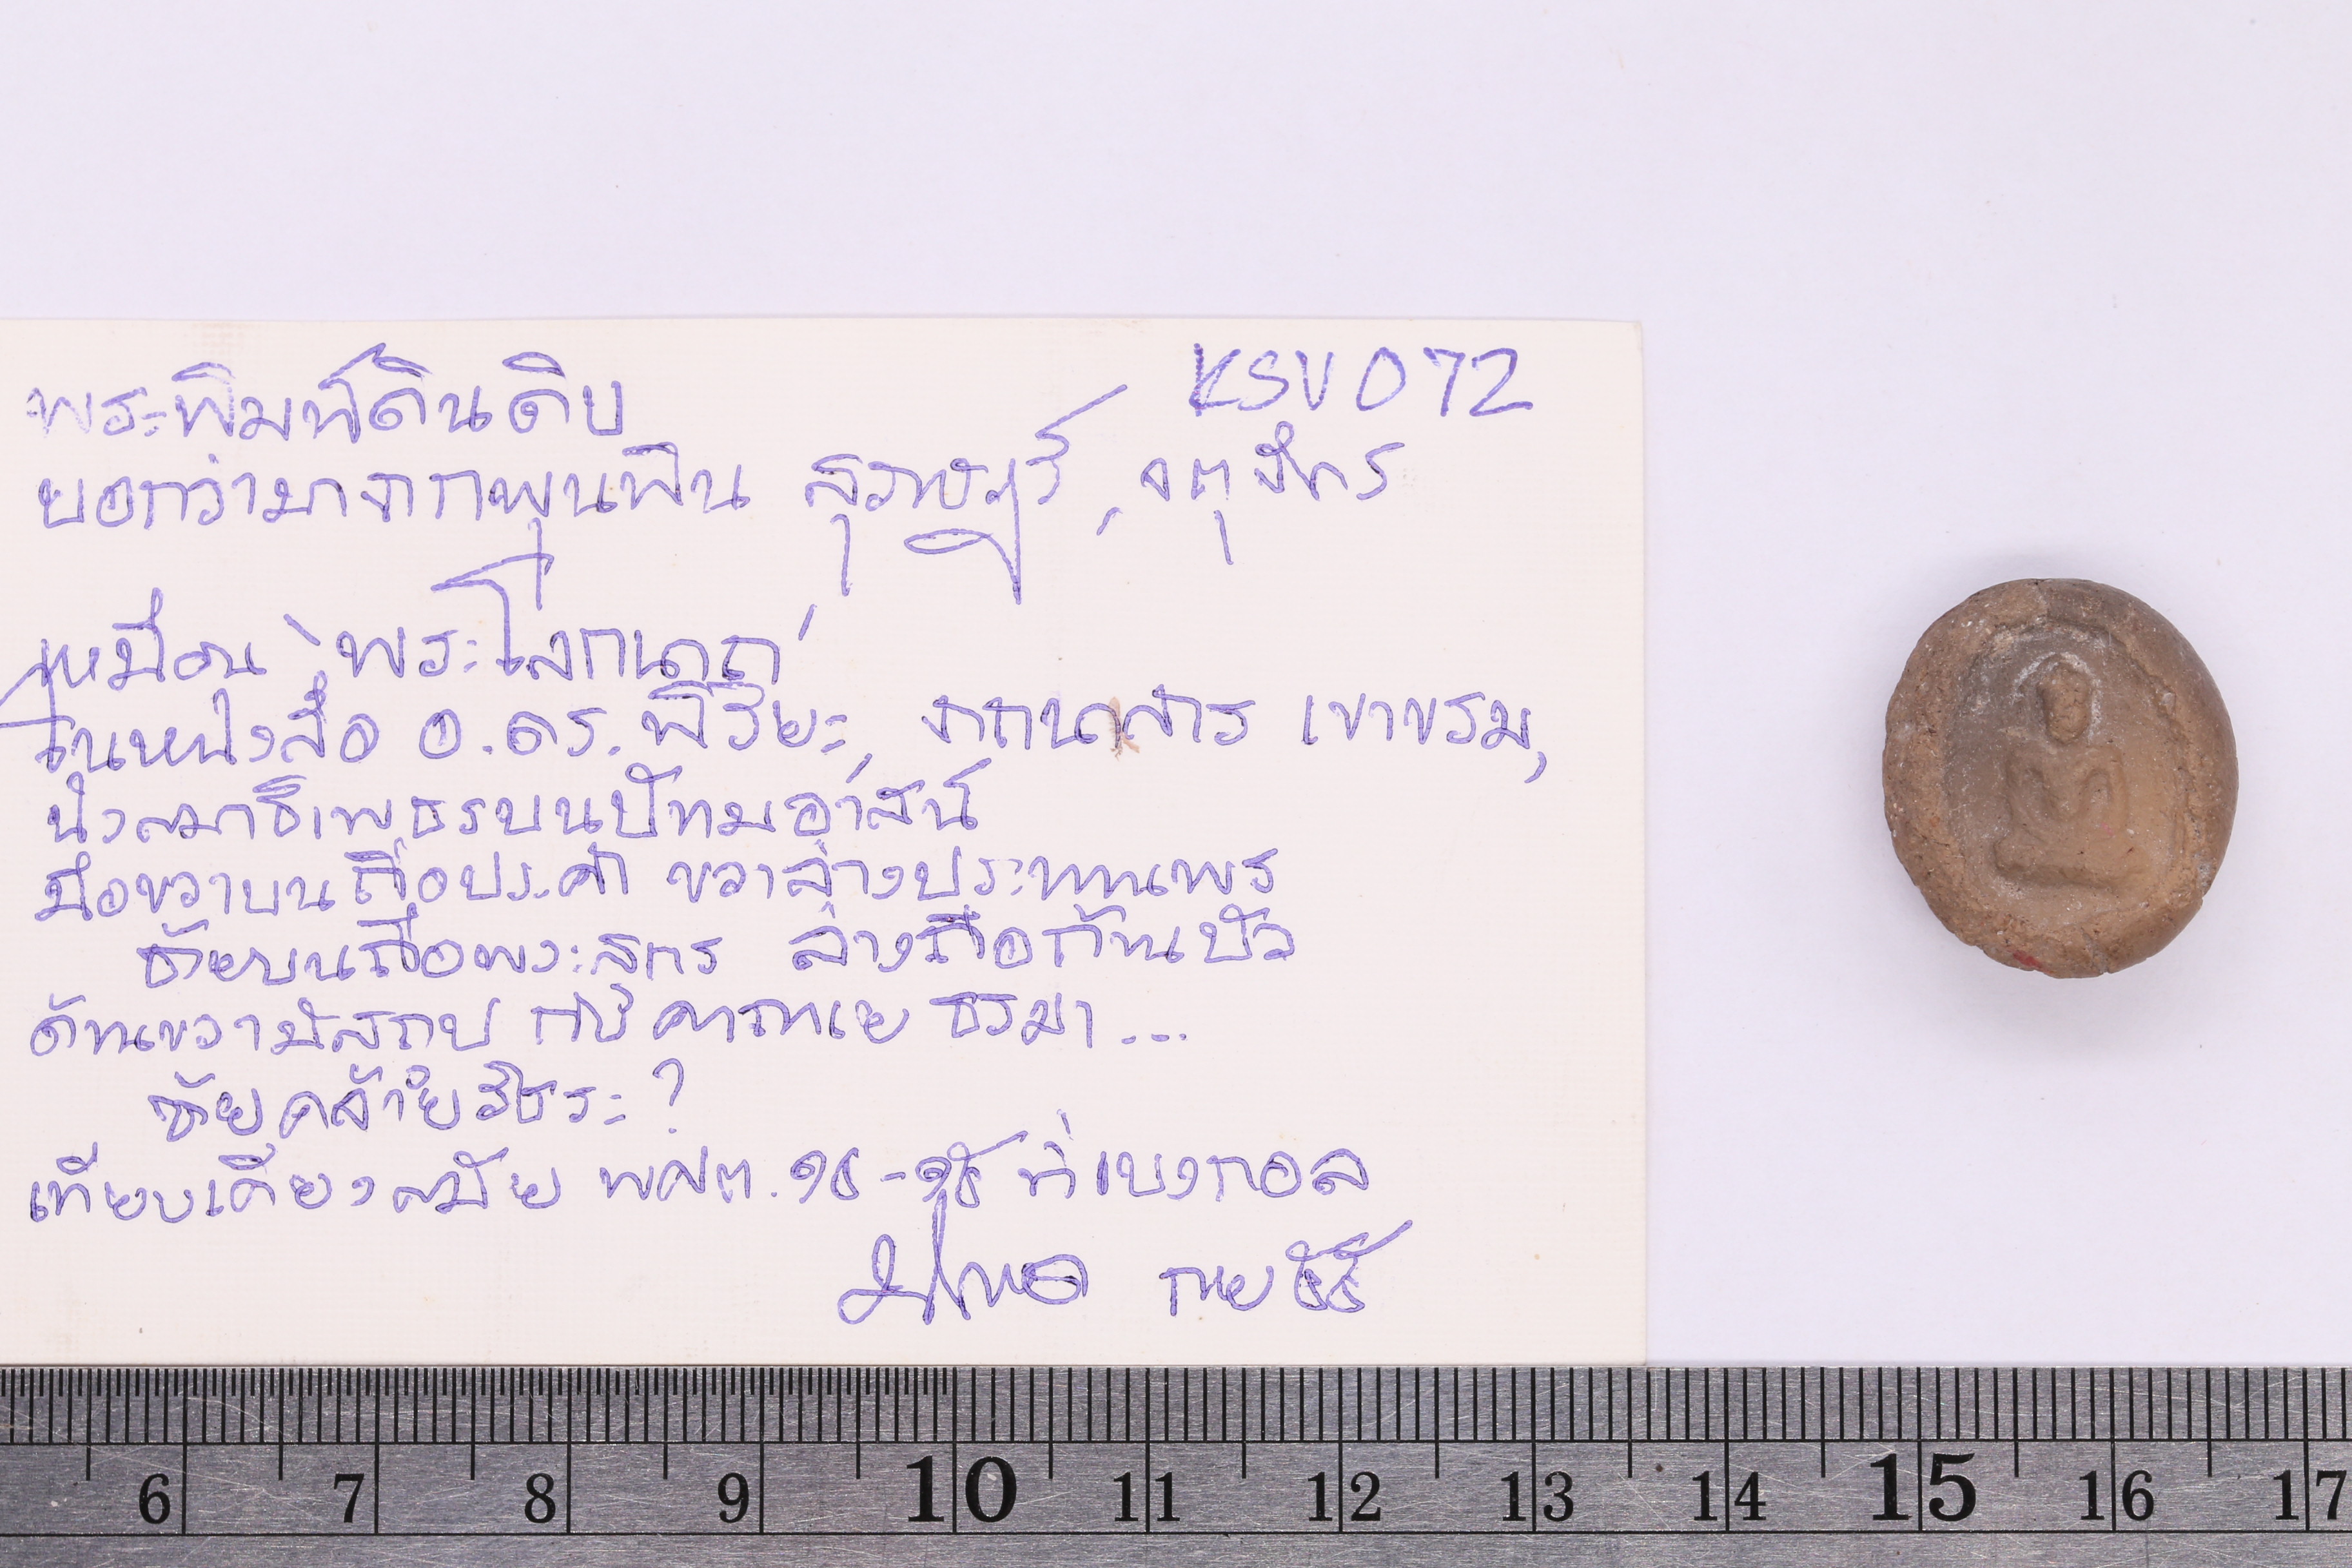 KSV 072
พระพิมพ์ดินดิบ
บอกว่ามาจากพุนพิน สุราษฎร์, จตุจักร
เหมือน "พระโลกนาถ"
ในหนังสือ อ.ดร.พิริยะ, จากนาสาร เขาขรม,
นั่งสมาธิเพชรบนปัทมอาสน์
มือขวาบนถือประคำ ขวาล่างประทานพร
ซ้ายบนถือพระสูตร ล่างถือก้านบัว
ด้านขวามีสถูป คาถาเย ธรมา...
ซ้าย คล้ายวัชระ?
เทียบเคียงสมัย พศต. ๑๖-๑๘ ที่เบงกอล
6 7 8 9 10 11 12 13 14 15 16 17